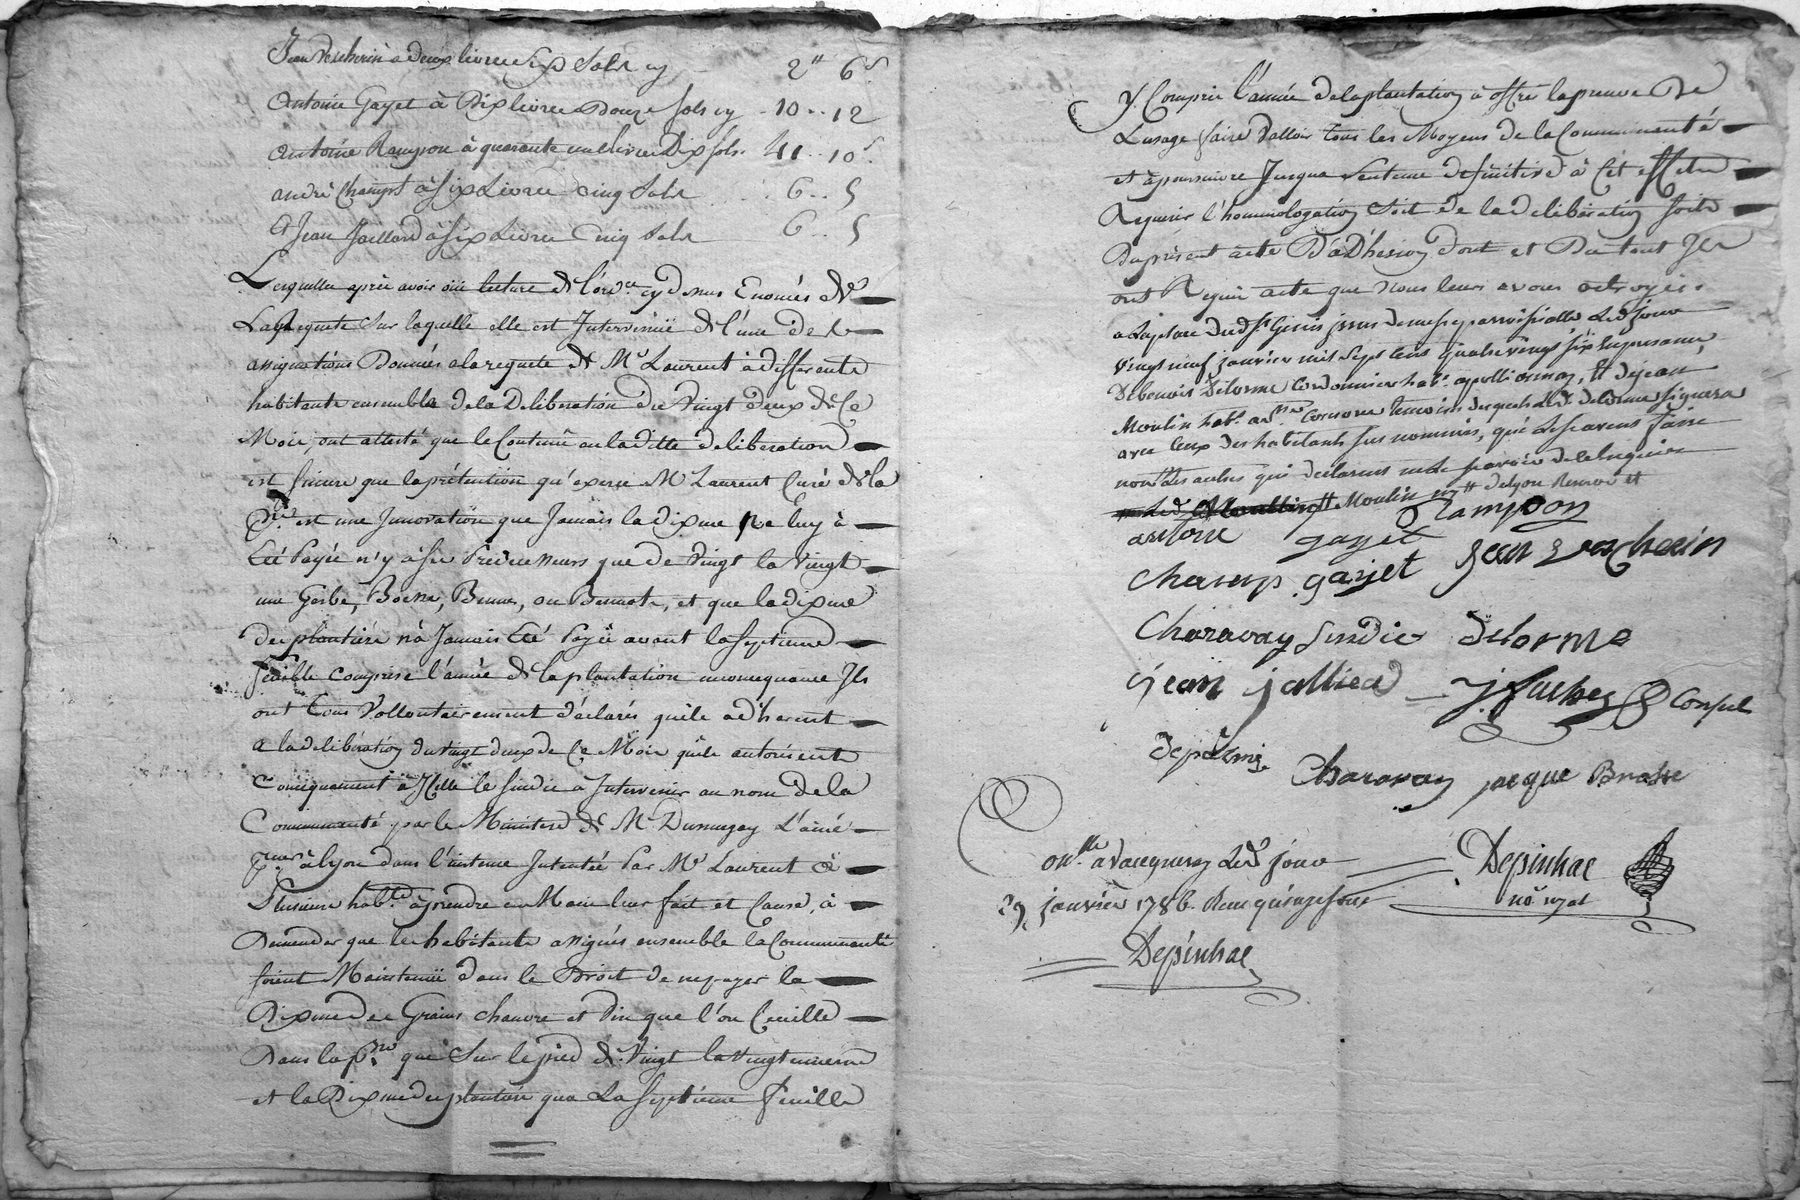 Jean Vercherin à deux livres six sols cy 2# 6s
Antoine Gayet à Dix livres Douze sols cy 10.. 12
Antoine Rampon à quarante une livres Dix sols 41.. 10s
andré Champt à Six Livres cinq Sols 6.. 5
& Jean Jaillard à six Livres Cinq sols 6.. 5
Lesquels après avoir oüi lecture de l'ordce cy dessus Enoncés de
La Requete sur laquelle elle est Intervenüe de l'une de
assignations Données a la requete de Mr Laurent à differents
habitants ensemble de la Deliberation du Vingt deux de Ce
Mois, ont attesté que le Contenu en la ditte deliberation
est sincere que la prétention qu'exerce Mr Laurent Curé de la
Psse est une Innovation que Jamais la dixme ne luy à
Eté Payée n'y à ses Predecesseurs que de Vingt la Vingt
une Gerbe, Bosne, Benne, ou Bennote, et que la dixme
des plantiers n'à Jamais Eté Payée avant la septieme
feuille comprise l'année de la plantation inconsequence Ils
ont Tous Vollontairement déclarés qu'ils adherent
a la deliberation du vingt deux de Ce Mois qu'ils autorisent
Consequemment à Icelle le sindic a Intervenir au nom de la
Communauté par le Ministere de Mr Dumugay L'ainé
à lyon dans l'instance Intentée Par Mr Laurent à
Plusieurs habts à prendre en Main leur fait et Cause, à
Demander que les habitants assignés ensemble la Communauté
soient Maintenüe dans le Droit de ne payer la
Dixme des Grains chanvre et Vin que l'on Ceuille
Dans la psse que Sur le pied de Vingt la vingt unieme
et la Dixme des plantiers qua La Septieme feuille
y Compris l'année de la plantation à offrir la preuve De
L'usage faire Valloir tous les Moyens de la Communauté
et à poursuivre Jusqua Sentence definitive à Cet effet
Requerir l'homologation Soit de la deliberation soit
Du présent acte D'adhesion dont et Du tout Ils
ont Requis acte que Nous leurs avons octroyés
vingt neuf janvier mil sept cens quatre vingt six En presence
De benoit Delorme Cordonnier habt a pollionnay, & de jean
Moulin habt temoins Delorme signera
avec Ceux des habitants sus nommés, qui Le scavent faire
non les autres qui declarent ne le scavoir de ce Enquis
Moulin de lyon
Rampon
antone gayet jean Vercherin
Champ. gayet
Charavay Sindic Delorme
jean jallied J. Consul
Charavay jacque Brosse
onlle a Vaugneray Led jour Depinhac
29 janvier 1786. no. royal
Depinhac